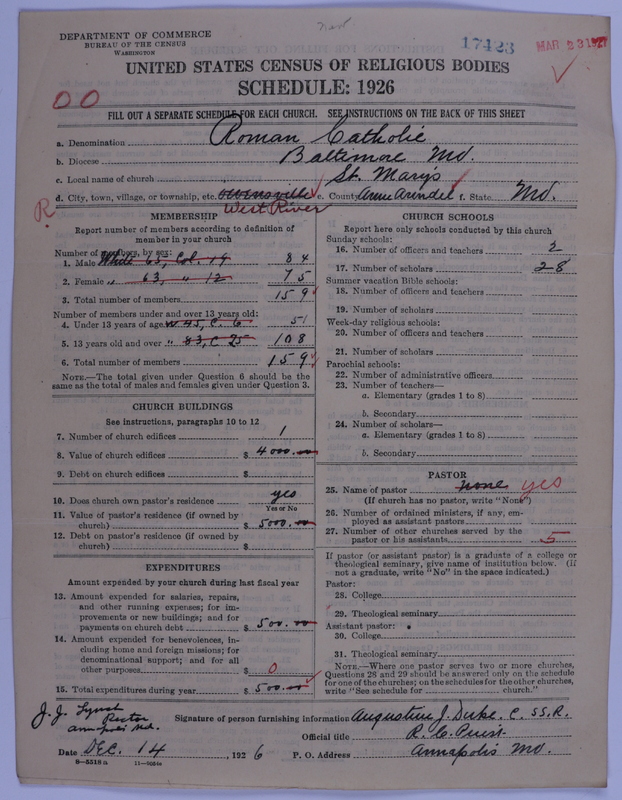 new
DEPARTMENT OF COMMERCE
BUREAU OF THE CENSUS
WASHINGTON
17423
MAR 23 1927
UNITED STATES CENSUS OF RELIGIOUS BODIES
SCHEDULE: 1926
00
FILL OUT A SEPARATE SCHEDULE FOR EACH CHURCH. SEE INSTRUCTIONS ON THE BACK OF THIS SHEET
a. Denomination Roman Catholic
b. Diocese Baltimore Md.
c. Local name of church St. Mary's
d. City, town, village, or township, etc. Owensville e. County Anne Arundel f. State Md.
R West River
MEMBERSHIP
Report number of members according to definition of
member in your church
Number of members, by sex:
1. Male White 65, Col. 19 84
2. Female " 63, " 12 75
3. Total number of members 159
Number of members under and over 13 years old:
4. Under 13 years of age W 45, C. 6 51
5. 13 years old and over " 83, C 25 108
6. Total number of members 159
NOTE.—The total given under Question 6 should be
same as the total of males and females given under Question 3.
CHURCH BUILDINGS
See instructions, paragraphs 10 to 12
7. Number of church edifices 1
8. Value of church edifices $ 4000.00
9. Debt on church edifices $
10. Does church own pastor's residence yes
Yes or No
11. Value of pastor's residence (if owned by
church) $ 5000.00
12. Debt on pastor's residence (if owned by
church) $
EXPENDITURES
Amount expended by your church during last fiscal year
13. Amount expended for salaries, repairs,
and other running expenses; for im-
provements or new buildings; and for
payments on church debt $ 500.00
14. Amount expended for benevolences, in-
cluding home and foreign missions; for
denominational support; and for all
other purposes $ 0
15. Total expenditures during year $ 500.00
CHURCH SCHOOLS
Report here only schools conducted by this church
Sunday schools:
16. Number of officers and teachers 2
17. Number of scholars 28
Summer vacation Bible schools:
18. Number of officers and teachers
19. Number of scholars
Week-day religious schools:
20. Number of officers and teachers
21. Number of scholars
Parochial schools:
22. Number of administrative officers
23. Number of teachers—
a. Elementary (grades 1 to 8)
b. Secondary
24. Number of scholars—
a. Elementary (grades 1 to 8)
b. Secondary
PASTOR
25. Name of pastor none yes
(If church has no pastor, write "None")
26. Number of ordained ministers, if any, em-
ployed as assistant pastors
27. Number of other churches served by the
pastor or his assistants 5
If pastor (or assistant pastor) is a graduate of a college or
theological seminary, give name of institution below. (If
not a graduate, write "No" in the space indicated.)
Pastor:
28. College
29. Theological seminary
Assistant pastor:
30. College
31. Theological seminary
NOTE.—Where one pastor serves two or more churches,
Questions 28 and 29 should be answered only on the schedule
for one of the churches; on the schedules for the other churches,
write "See schedule for church."
J. J. Lynch
Rector
Annapolis Md.
Signature of person furnishing information Augustine J. Duke. C.SS.R.
Official title R. C. Priest
Date DEC. 14, 1926 P. O. Address Annapolis Md.
8—5518 a 11—9064a